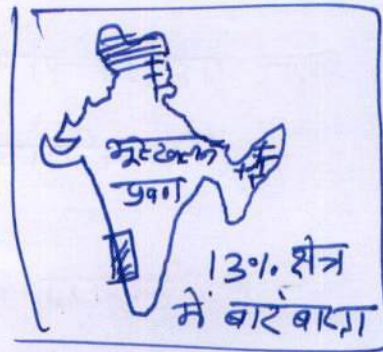 भूस्खलन
प्रवण
13% क्षेत्र
में बारंबारता